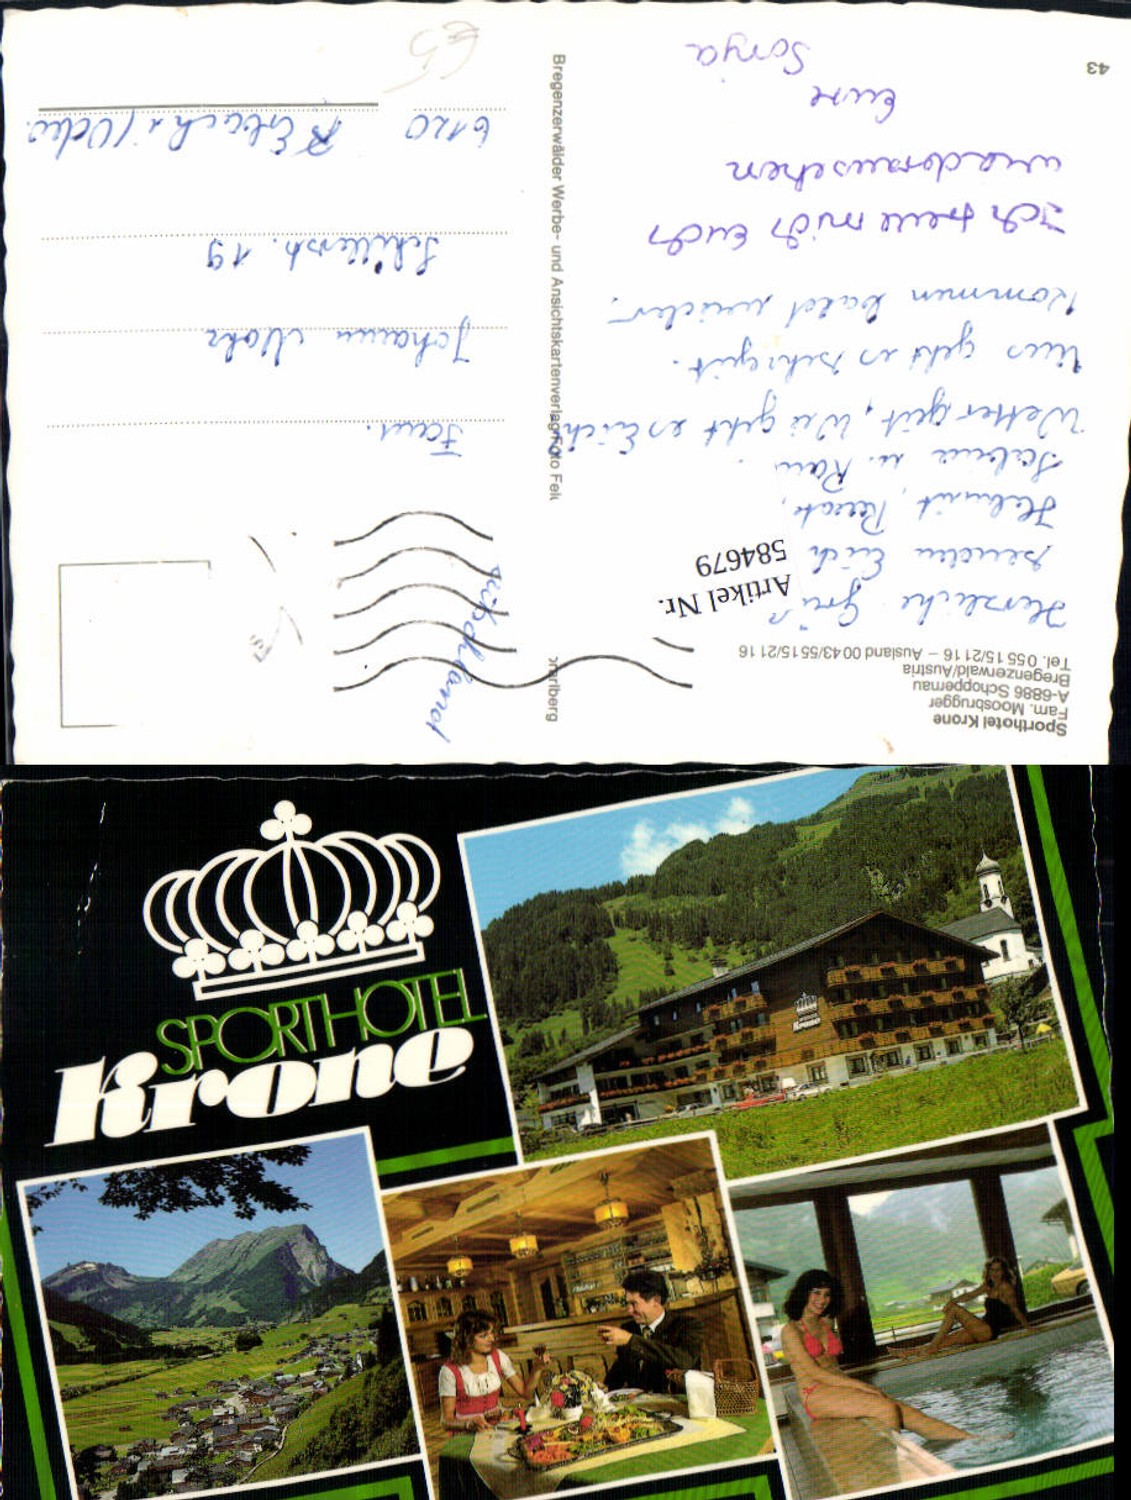 Sporthotel Krone
Fam. Moosbrugger
A-6886 Schoppernau
Bregenzerwald/Austria
Tel. 0 55 15/21 16 – Ausland 00 43/55 15/21 16
Artikel Nr.
584679
Herzliche Grüß
senden Euch
Helmut, Renate,
Sabine u.
Wetter gut, Wie geht es Euch
Uns geht es sehr gut.
Kommen bald wieder.
Ich freue mich Euch
wiederzusehen
Eure
Sonja
43
Bregenzerwälder Werbe- und Ansichtskartenverlag Foto Fel
orarlberg
utschland
Fam.
Johann
Schillerstr. 19
6120 Erbach i/Odw.
SPORTHOTEL
Krone
Krone